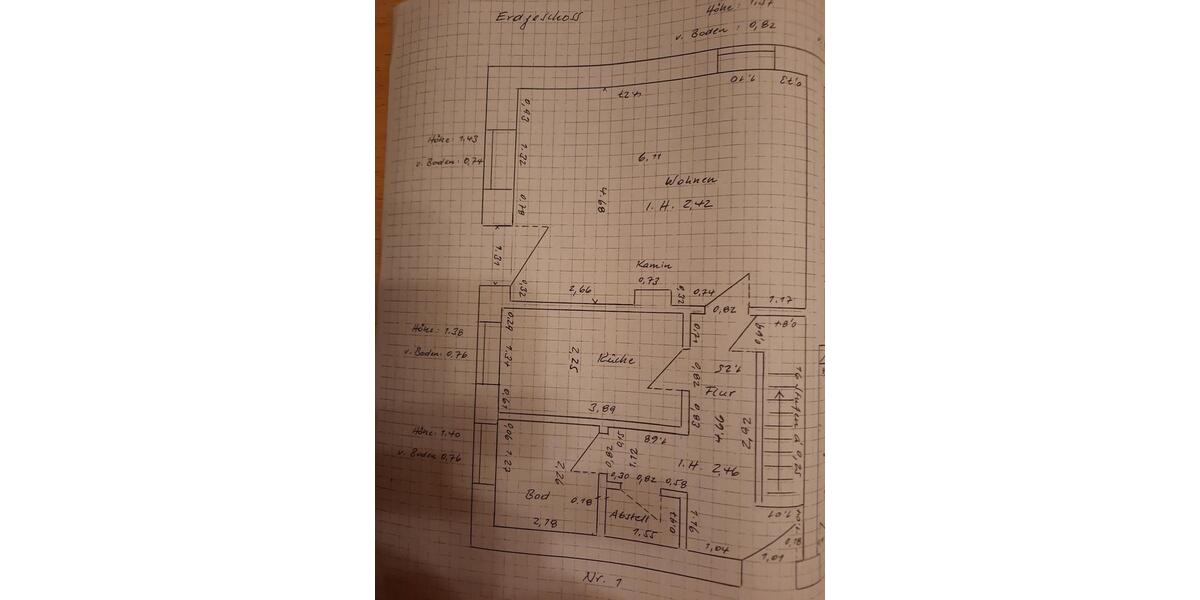 Erdgeschoss
Höhe: 1.47
v. Boden: 0,82
1.10
0,73
4.27
0,93
Höhe: 1.43
v. Boden: 0,74
1.32
6,11
Wohnen
0,78
4.68
I. H. 2,42
1.31
Kamin
0,73
0,74
0,32
2,66
0,32
0,82
1.17
0,84
0,29
0,71
Höhe: 1.38
v. Boden: 0,76
1.31
2,25
Küche
0,82
1.25
Flur
16 Stufen á 0,25
0,61
3,89
0,83
4.66
2,92
Höhe: 1.40
v. Boden 0,76
0,06
0,15
1.68
1.27
0,82
1.12
I.H. 2,46
2,26
0,30
0,82
0,58
Bad
0,18
Abstell
0,97
1.16
1.01
2,78
1.55
1,04
1,01
0,18
Nr. 1